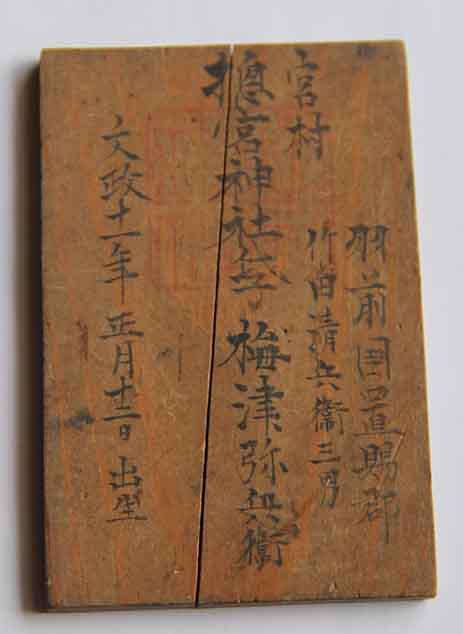 羽前国置賜郡
宮村
竹田清兵衛三男
摠宮神社氏子 梅津弥兵衛
文政十一年 正月十二日 出生